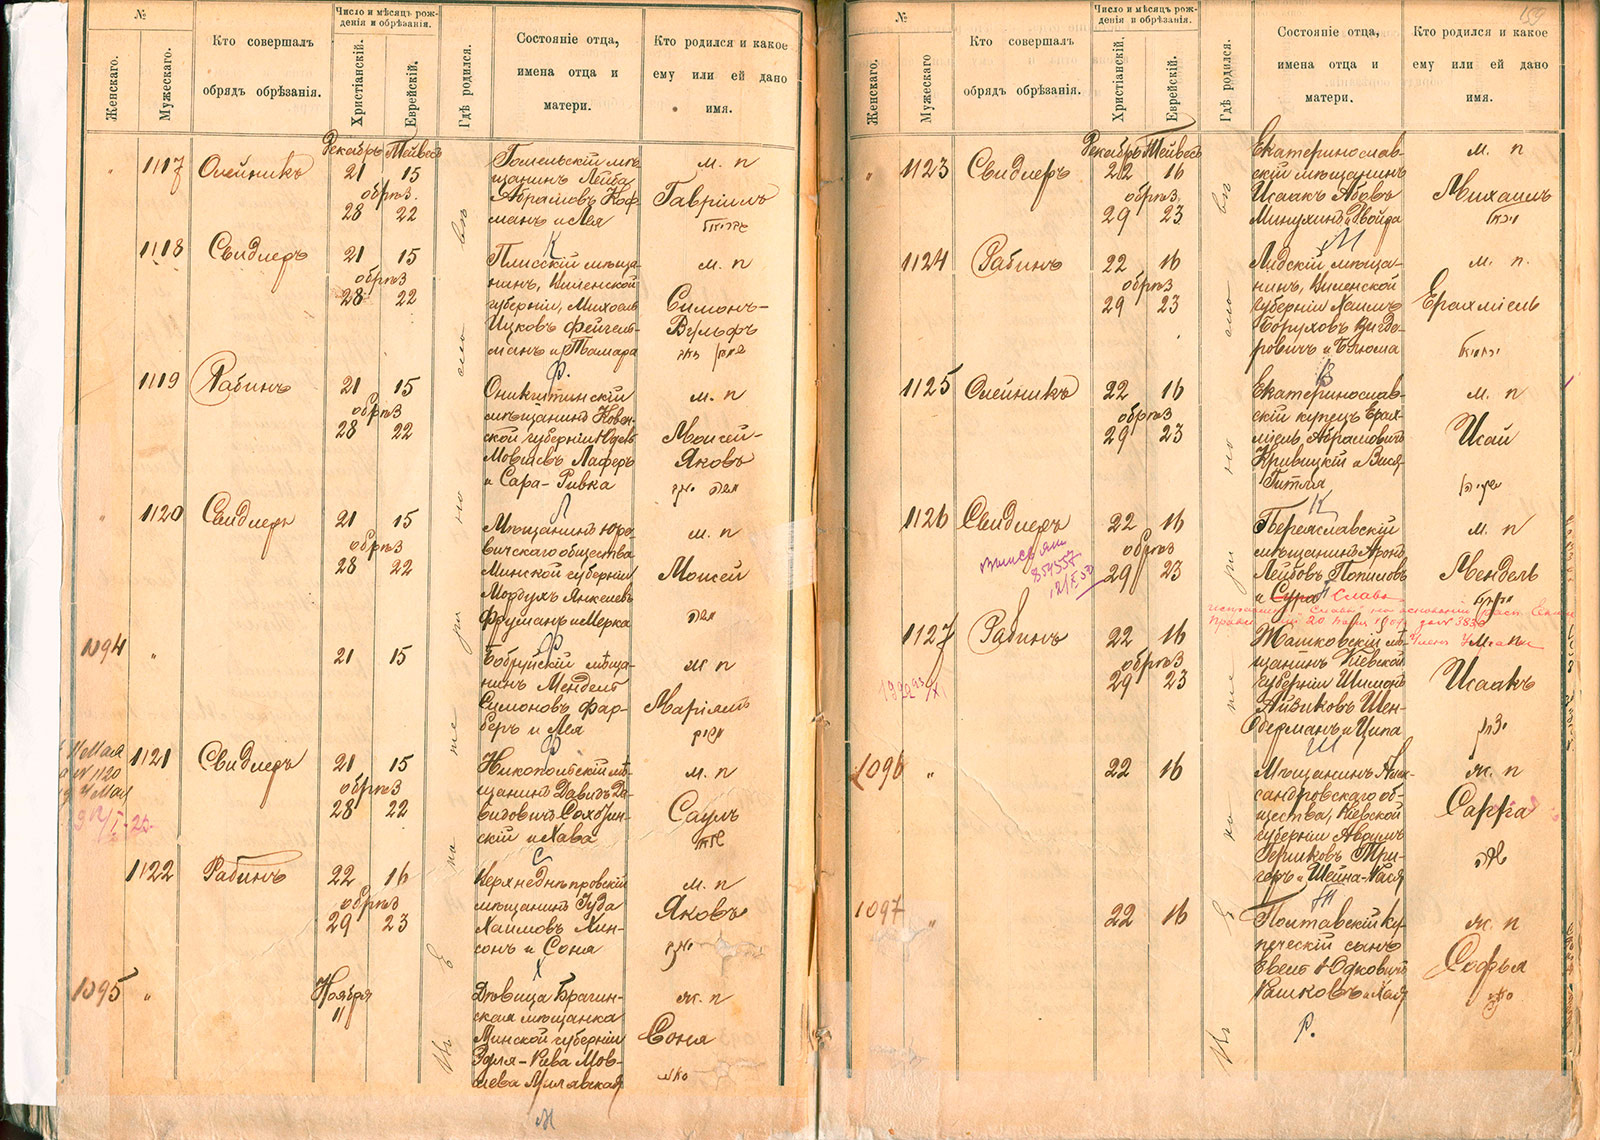 №
Женскаго.
Мужескаго.
Кто совершалъ
обрядъ обрѣзанія.
Число и мѣсяцъ рож-
денія и обрѣзанія.
Христіанскій.
Еврейскій.
Гдѣ родился.
Состояніе отца,
имена отца и
матери.
Кто родился и какое
ему или ей дано
имя.
Декабрь Тейвесъ
1117 Олейникъ 21 15
обрѣз.
28 22
Гомельскій мѣ-
щанинъ Лейба
Абрамовъ Коф
манъ и Лея
м. п
Гавріилъ
גבריאל
1118 Свидлеръ 21 15
обрѣз
28 22
К
Плисскій мѣща-
нинъ, Виленской
губерніи, Михоель
Ицковъ Фейгель-
манъ и Тамара
м. п
Симонъ-
Вульфъ
1119 Рабинъ 21 15
обрѣз
28 22
Ф.
Оникштинскій
мѣщанинъ Ковен
ской губерніи Юдель
Мовшевъ Лаферъ
и Сара-Ривка
м. п
Моисей-
Яковъ
1120 Свидлеръ 21 15
обрѣз
28 22
Л
Мѣщанинъ Юро
вичскаго общества
Минской губерніи
Мордухъ Янкелевъ
Фруманъ и Мерка
м. п
Моисей
משה
1094 " 21 15
Ф
Бобруйскій мѣща-
нинъ Мендель
Симоновъ Фар-
беръ и Лея
ж. п
Маріямъ
מרים
1121 Свидлеръ 21 15
обрѣз
28 22
Ф
Никопольскій мѣ
щанинъ Давидъ Да-
видовичъ Сахбин-
скій и Хава
м. п
Саулъ
שאול
1122 Рабинъ 22 16
обрѣз
29 23
С
Верхнеднѣпровскій
мѣщанинъ Іуда
Хаимовъ Хин-
сонъ и Соня
м. п
Яковъ
יעקב
1095 " Ноября
11
Х
Дѣвица Брагин-
ская мѣщанка
Минской губерніи
Эдля-Рива Мов-
шева Милявская
ж. п
Соня
М
Въ Екатеринославѣ
159
№
Женскаго.
Мужескаго
Кто совершалъ
обрядъ обрѣзанія.
Число и мѣсяцъ рож-
денія и обрѣзанія.
Христіанскій.
Еврейскій.
Гдѣ родился.
Состояніе отца,
имена отца и
матери.
Кто родился и какое
ему или ей дано
имя.
Декабрь Тейвесъ
1123 Свидлеръ 22 16
обрѣз
29 23
Екатеринослав-
скій мѣщанинъ
Исаакъ Абовъ
Минухинъ и Двойра
м. п
Михаилъ
מיכאל
1124 Рабинъ 22 16
обрѣз
29 23
М
Лидскій мѣща-
нинъ, Виленской
губерніи Хаимъ
Боруховъ Вигдо-
ровичъ и Блюма
м. п.
Ерахміель
ירחמיאל
1125 Олейникъ 22 16
обрѣз
29 23
В
Екатеринослав-
скій купецъ Ерах-
міель Абрамовичъ
Кривицкій и Вися-
Гитля
м. п
Исай
ישעיה
1126 Свидлеръ 22 16
обрѣз
29 23
К
Переяславскій
мѣщанинъ Аронъ
Лейбовъ Попиловъ
и Сура Слава
м. п
Мендель
1127 Рабинъ 22 16
обрѣз
29 23
Ташковскій мѣ-
щанинъ Кіевской
губерніи Шимонъ
Айзиковъ Шен-
дерманъ и Ципа
м. п
Исаакъ
יצחק
1096 " 22 16
Ш
Мѣщанинъ Алек-
сандровскаго об-
щества, Кіевской
губерніи Аврумъ
Гершковъ Три-
геръ и Шейна-Хася
ж. п
Сарра
שרה
1097 " 22 16
Т
Полтавскій ку-
печескій сынъ
Евель Юдковичъ
Рашковъ и Хая
ж. п
Софья
Р.
Въ Екатеринославѣ